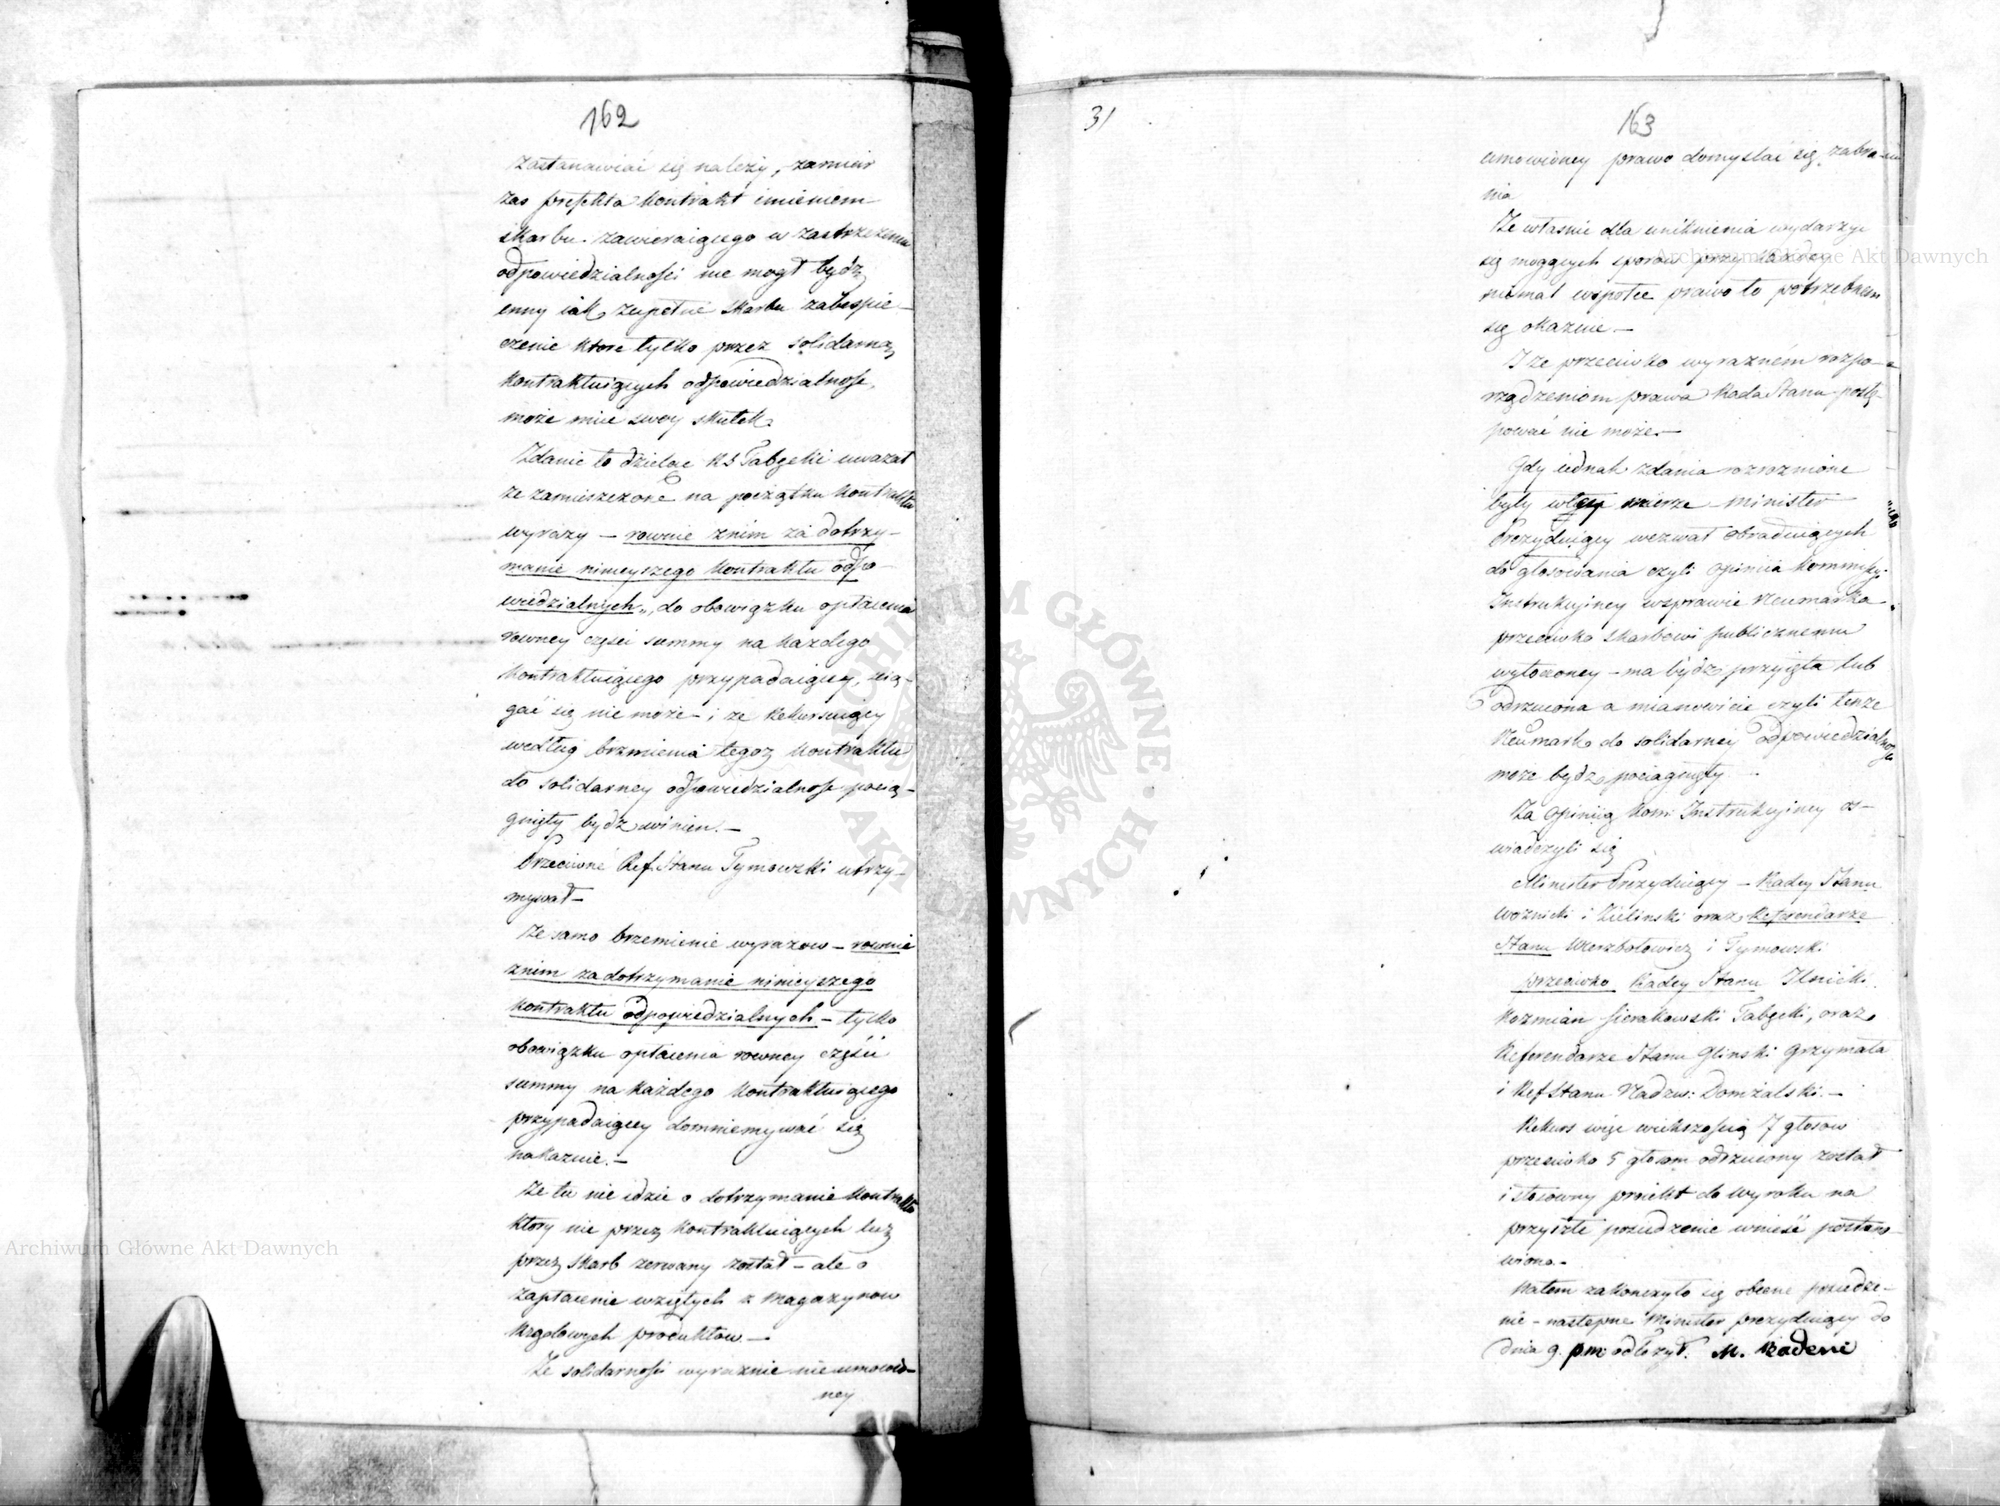 162
zastanawiać się należy, zamiar
zas prefekta Kontrakt imieniem
skarbu zawieraiącego w zastrzeżeniu
odpowiedzialności nie mogł bydź
inny iak zupełne skarbu zabespie-
czenie ktore tylko przez solidarną
Kontraktuiących odpowiedzialność
może mieć swoy skutek
Zdanie to dzieląc RS Tabęcki uważał
że zamieszczone na początku Kontraktu
wyrazy – rownie znim za dotrzy-
manie ninieyszego Kontraktu odpo-
wiedzialnych„ do obowiązku opłacenia
rowney części summy na każdego
Kontraktuiącego przypadaiącey, ścią-
gać się nie może – i że Rekursuiący
według brzmienia tegoż Kontraktu
do solidarney odpowiedzialności pocią-
gnięty bydź winien. –
Przeciwnie Ref. Stanu Tymowski utrzy-
mywał –
Że samo brzemienie wyrazow – rownie
znim za dotrzymanie ninieyszego
Kontraktu odpowiedzialnych – tylko
obowiązku opłacenia rowney części
summy na każdego Kontraktuiącego
przypadaiącey domniemywać się
nakazuie. –
Że tu nie idzie o dotrzymanie Kontraktu
ktory nie przez Kontraktuiących lecz
przez skarb zerwany został – ale o
zapłacenie wziętych z Magazynow
Rządowych produktow –
Że solidarności wyraznie nie umowio-
ney
31
163
umowioney prawo domyslać się zabra-
nia
Że własnie dla uniknienia wydarzyć
się mogących sporow przy każdey
niemal wspołce prawo to potrzebnem
się okazuie –
I że przeciwko wyraznem rozpo-
rządzeniom prawa Rada Stanu postę-
pować nie może –
Gdy iednak zdania rozroznione
były w tey mierze Minister
Prezyduiący wezwał obraduiących
do głosowania czyli opiniia Kommissyi
Instrukcyiney w sprawie Neumarka
przeciwko skarbowi publicznemu
wytoczoney – ma bydź przyięta lub
odrzucona a mianowicie czyli tenże
Neumark do solidarney odpowiedzialności
może bydź pociągnięty –
Za opiniią Kom: Instrukcyiney os-
wiadczyli się
Minister Prezyduiący – Radcy Stanu
Woznicki i Zielinski oraz Referendarze
Stanu Wierzbołowicz i Tymowski
przeciwko Radcy Stanu Ilnicki
Kozmian Sierakowski Tabęcki, oraz
Referendarze Stanu Glinski Grzymała
i Ref Stanu Nadzw: Domżalski. –
Rekurs więc większością 7 głosow
przeciwko 5 głosom odrzucony został
i stosowny proiekt do wyroku na
przyszłe posiedzenie wnieść postano-
wiono –
Natem zakonczyło się obecne posiedze-
nie – następne Minister prezyduiący do
dnia 9. pm. odłożył. M. Badeni
Archiwum Główne Akt Dawnych
Archiwum Główne Akt Dawnych
ARCHIWUM GŁÓWNE AKT DAWNYCH